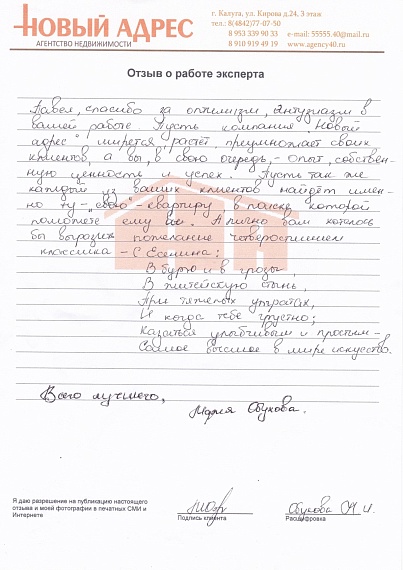 НОВЫЙ АДРЕС
АГЕНТСТВО НЕДВИЖИМОСТИ
г. Калуга, ул. Кирова д.24, 3 этаж
тел.: 8(4842)77-07-50
8 953 339 90 33 e-mail: 55555.40@mail.ru
8 910 919 49 19 www.agency40.ru
Отзыв о работе эксперта
Павел, спасибо за оптимизм, энтузиазм в
вашей работе. Пусть компания "Новый
адрес" ширется, растет, приумножает своих
клиентов, а вы, в свою очередь, - опыт, собствен-
ную ценность и успех. Пусть так же
каждый из ваших клиентов найдёт имен-
но ту - "свою" - квартиру, в поиске которой
поможете ему вы. А лично вам хотелось
бы выразить пожелание четверостишием
классика - С. Есенина:
В бурю и в грозы,
В житейскую стынь,
При тяжелых утратах,
И когда тебе грустно;
Казаться улыбчивым и простым -
Самое высшее в мире искусство.
Всего лучшего,
Мария Обухова.
Я даю разрешение на публикацию настоящего
отзыва и моей фотографии в печатных СМИ и
Интернете
Подпись клиента
Обухова М.И.
Расшифровка